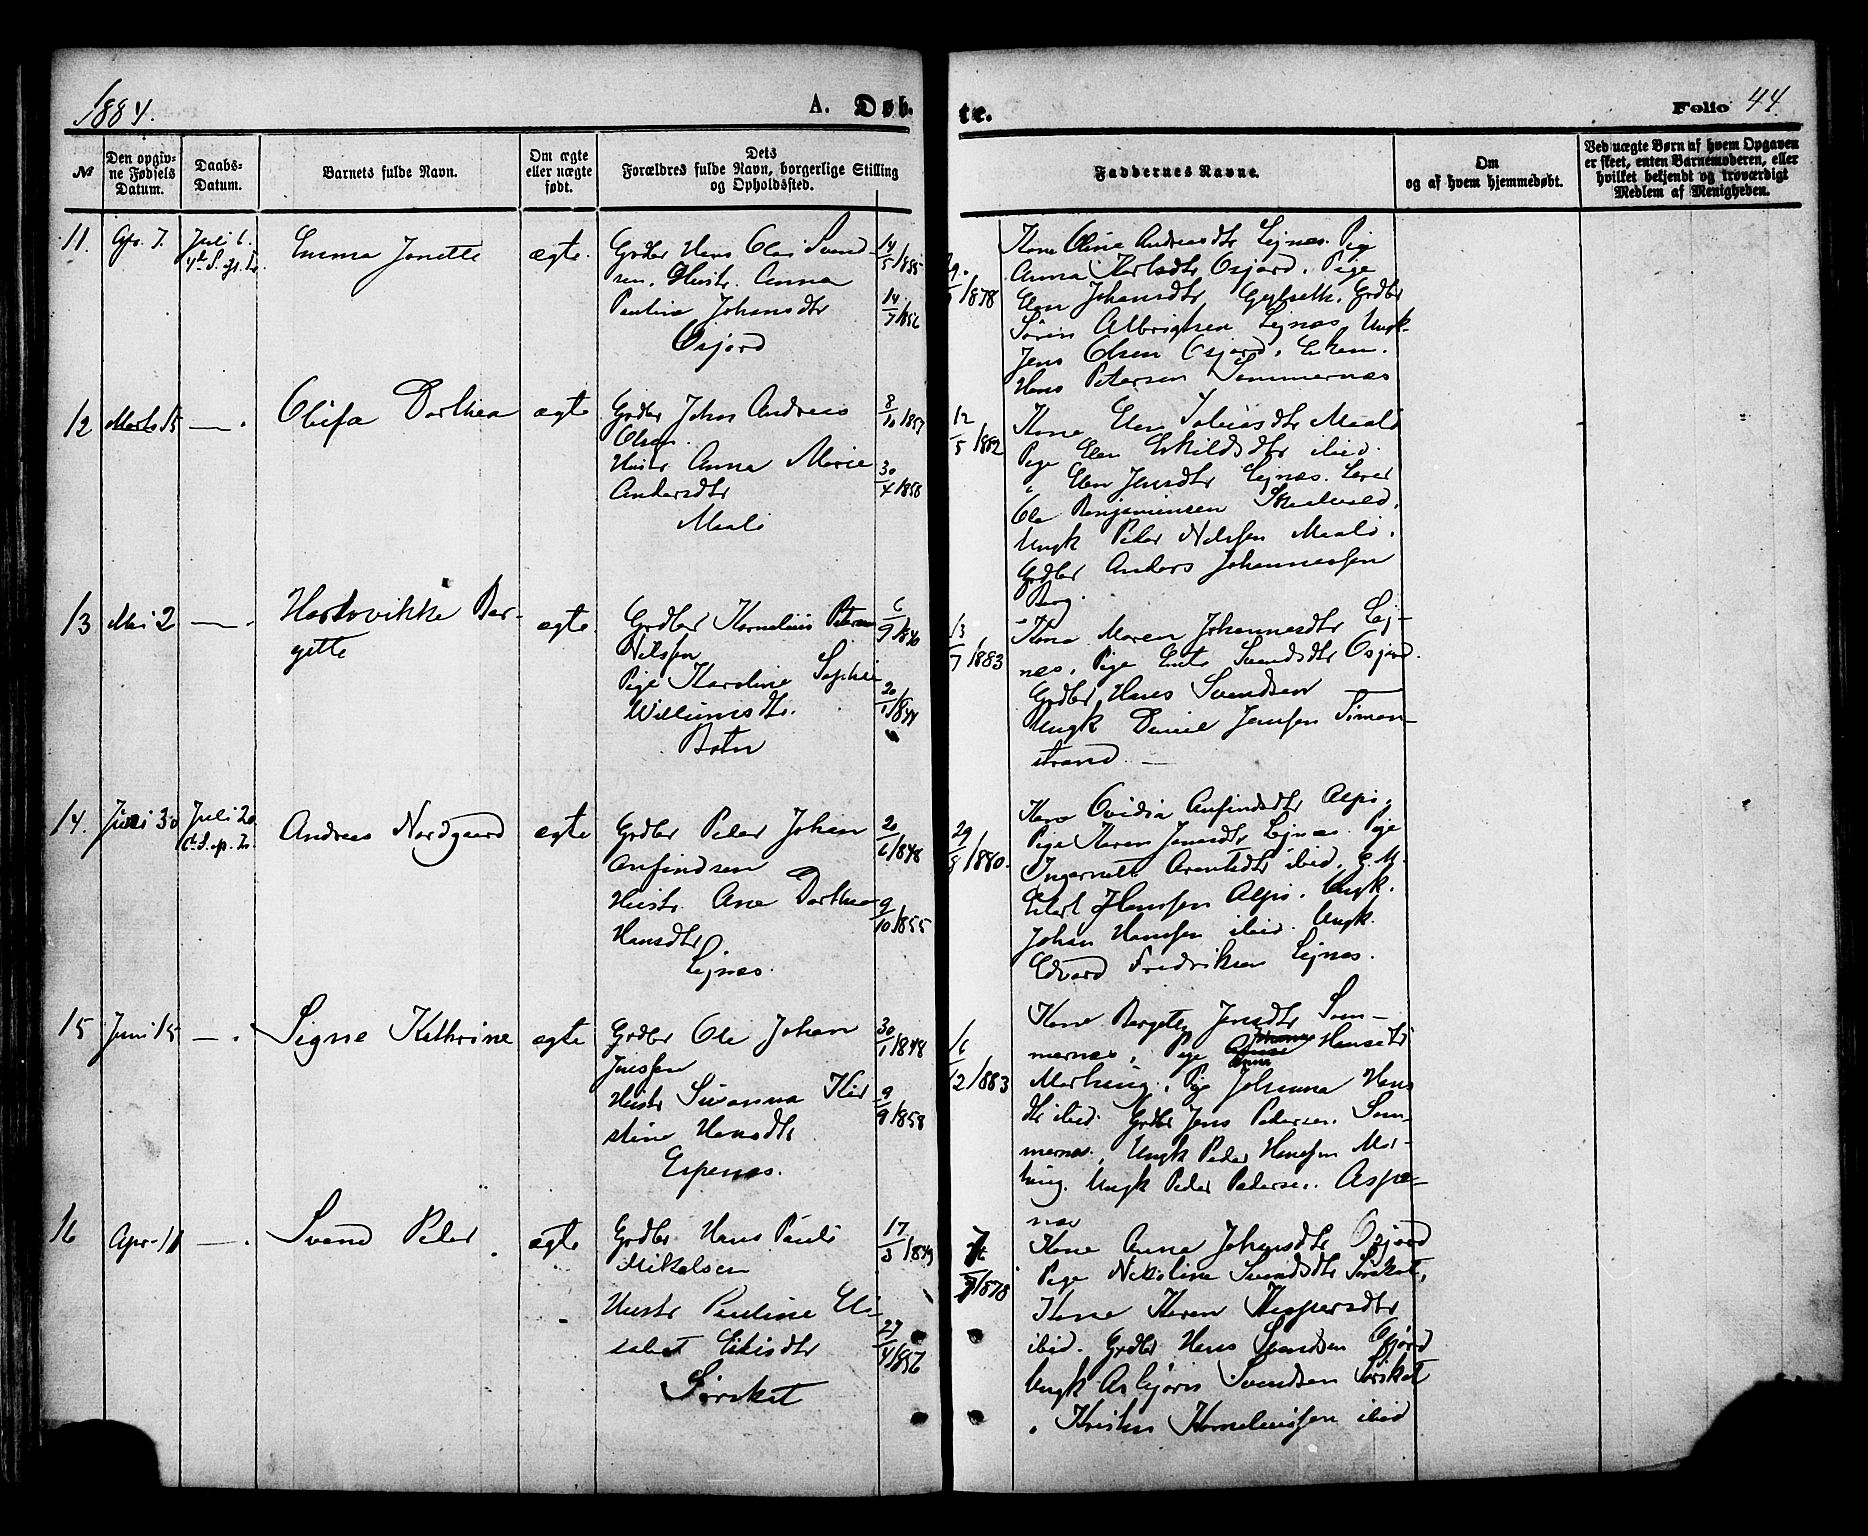 1884.
A. Døb-
te.
Folio 44
№
Den opgiv-
ne Fødsels
Datum.
Daabs-
Datum.
Barnets fulde Navn.
Om ægte
eller uægte
født.
Dets
Forældres fulde Navn, borgerlige Stilling
og Opholdssted.
Faddernes Navne.
Om
og af hvem hjemmedøbt.
Ved uægte Børn af hvem Opgaven
er skeet, enten Barnemoderen, eller
hvilket bekjendt og troværdigt
Medlem af Menigheden.
11.
7.
Juli 6.
Emma Jonette
ægte.
Grdbr Hans Olai Svend-
sen. Hustr. Anna
Paulina Johansdtr
Osjord
14/5/1855
14/7/1856
1878
Kone Olina Andreasdtr Lejnas. Pige
Anna Karlsdtr Osjord. Pige
Elen Johansdtr Gylseth. Grdbr
Søren Albrigtsen Lejnas. Ungk.
Jens Olsen Osjord.
Hans Petersen Sommernas
12
Marts 15
— .
Olufa Dorthea
ægte
Grdbr John Andreas
Olsen.
Hustr Anna Marie
Andersdtr
Maali
8/10/1857
30/4/1858
12/5/1882
Kone Elen Tobiasdtr Maali
Pige Elen Eskildsdtr ibid.
" Elen Jensdtr Lejnas.
Ole Benjaminsen
Ungk Peder Nilssen Maali.
Grdbr Anders Johannessen
Berg.
13
Mai 2
— .
Hartvikke Ber-
gitte
ægte.
Grdbr Kornelius Petersen
Nilssen
Pige Karoline Sophie
Willumsdtr.
Botn
6/9/1840
20/1/1844
13/7/1883
Kone Maren Johannesdtr Lej-
nas. Pige Svendsdtr Osjord.
Grdbr Hans Svendsen —
Ungk Daniel Jenssen Simon-
strand. —
14.
Juni 30
Juli 20
Andreas Nordgaard
ægte
Grdbr Peder Johan
Anfindsen
Hustr. Ane Dorthea
Hansdtr
Lejnas.
20/6/1848
9/10/1855
1880.
Kone Ovidia Anfindsdtr Alpis.
Pige Karen Jensdtr Lejnas. Pige
Arentsdtr ibid. G.M.
Edert Hanssen Alpis. Ungk.
Johan Hanssen ibid. Ungk.
Edvard Fredriksen Lejnas.
15
Juni 15
— .
Signe Kathrine
ægte
Grdbr Ole Johan
Jenssen
Hustr Susanna Kir
stine Hansdtr
Espenas.
30/1/1848
9/9/1858
16/12/1883
Kone Bergete Jensdtr Som-
mernas, Pige Anna Hansdtr
Markeng. Pige Johanna Hans
dtr ibid. Grdbr Jens Pedersen. Som-
mernas. Ungk Peder Hanssen Mar-
keng. Ungk Peder Pedersen. Aspe-
nas
16
Apr. 11
— .
Svend Peder
ægte
Grdbr Hans Pauli
Mikalsen
Hustr Pauline Eli-
sabet
Sørskot
17/3/1849
27/4/1856
1878
Kone Anna Johansdtr Osjord
Pige Nikoline Svendsdtr Sørskot.
Kone Karen Kaspersdtr
ibid. Grdbr Hans Svendsen Osjord
Ungk Asbjørn Svendsen Sørskot
" Kristen Korneliussen ibid